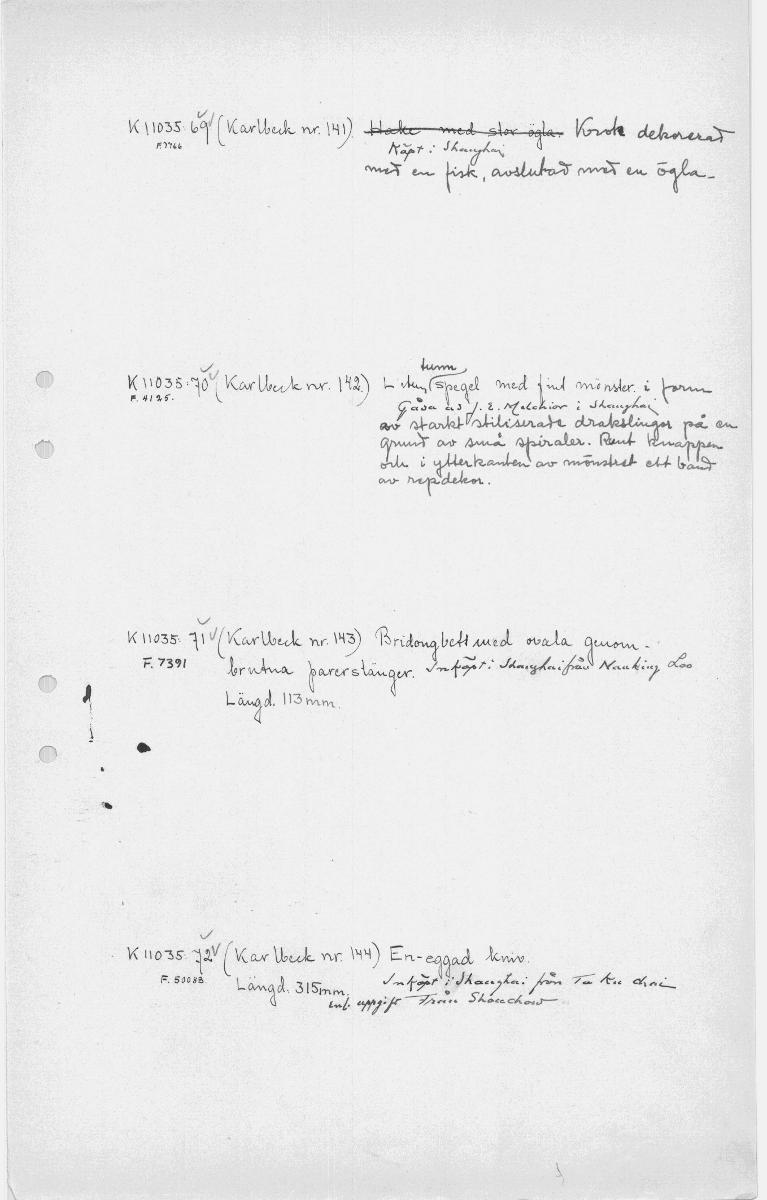 K 11035:69 (Karlbeck nr. 141) Hake med stor ögla. Krok dekorerad
F.7766 Köpt i Shanghai
med en fisk, avslutad med en ögla.
tunn
K 11035:70 (Karlbeck nr. 142) Liten spegel med fint mönster i form
F. 4125. Gåva av J. E. Melchior i Shanghai
av starkt stiliserade drakslingor på en
grund av små spiraler. Runt knappen
och i ytterkanten av mönstret ett band
av repdekor.
K 11035:71 (Karlbeck nr. 143) Bridongbett med ovala genom-
F. 7391 brutna parerstänger. Inköpt i Shanghai från Nanking Loo
Längd. 113 mm.
K 11035:72 (Karlbeck nr. 144) En-eggad kniv.
F. 50083 Längd. 315 mm. Inköpt i Shanghai från Ta Ku chai
enl. uppgift Från Shouchow